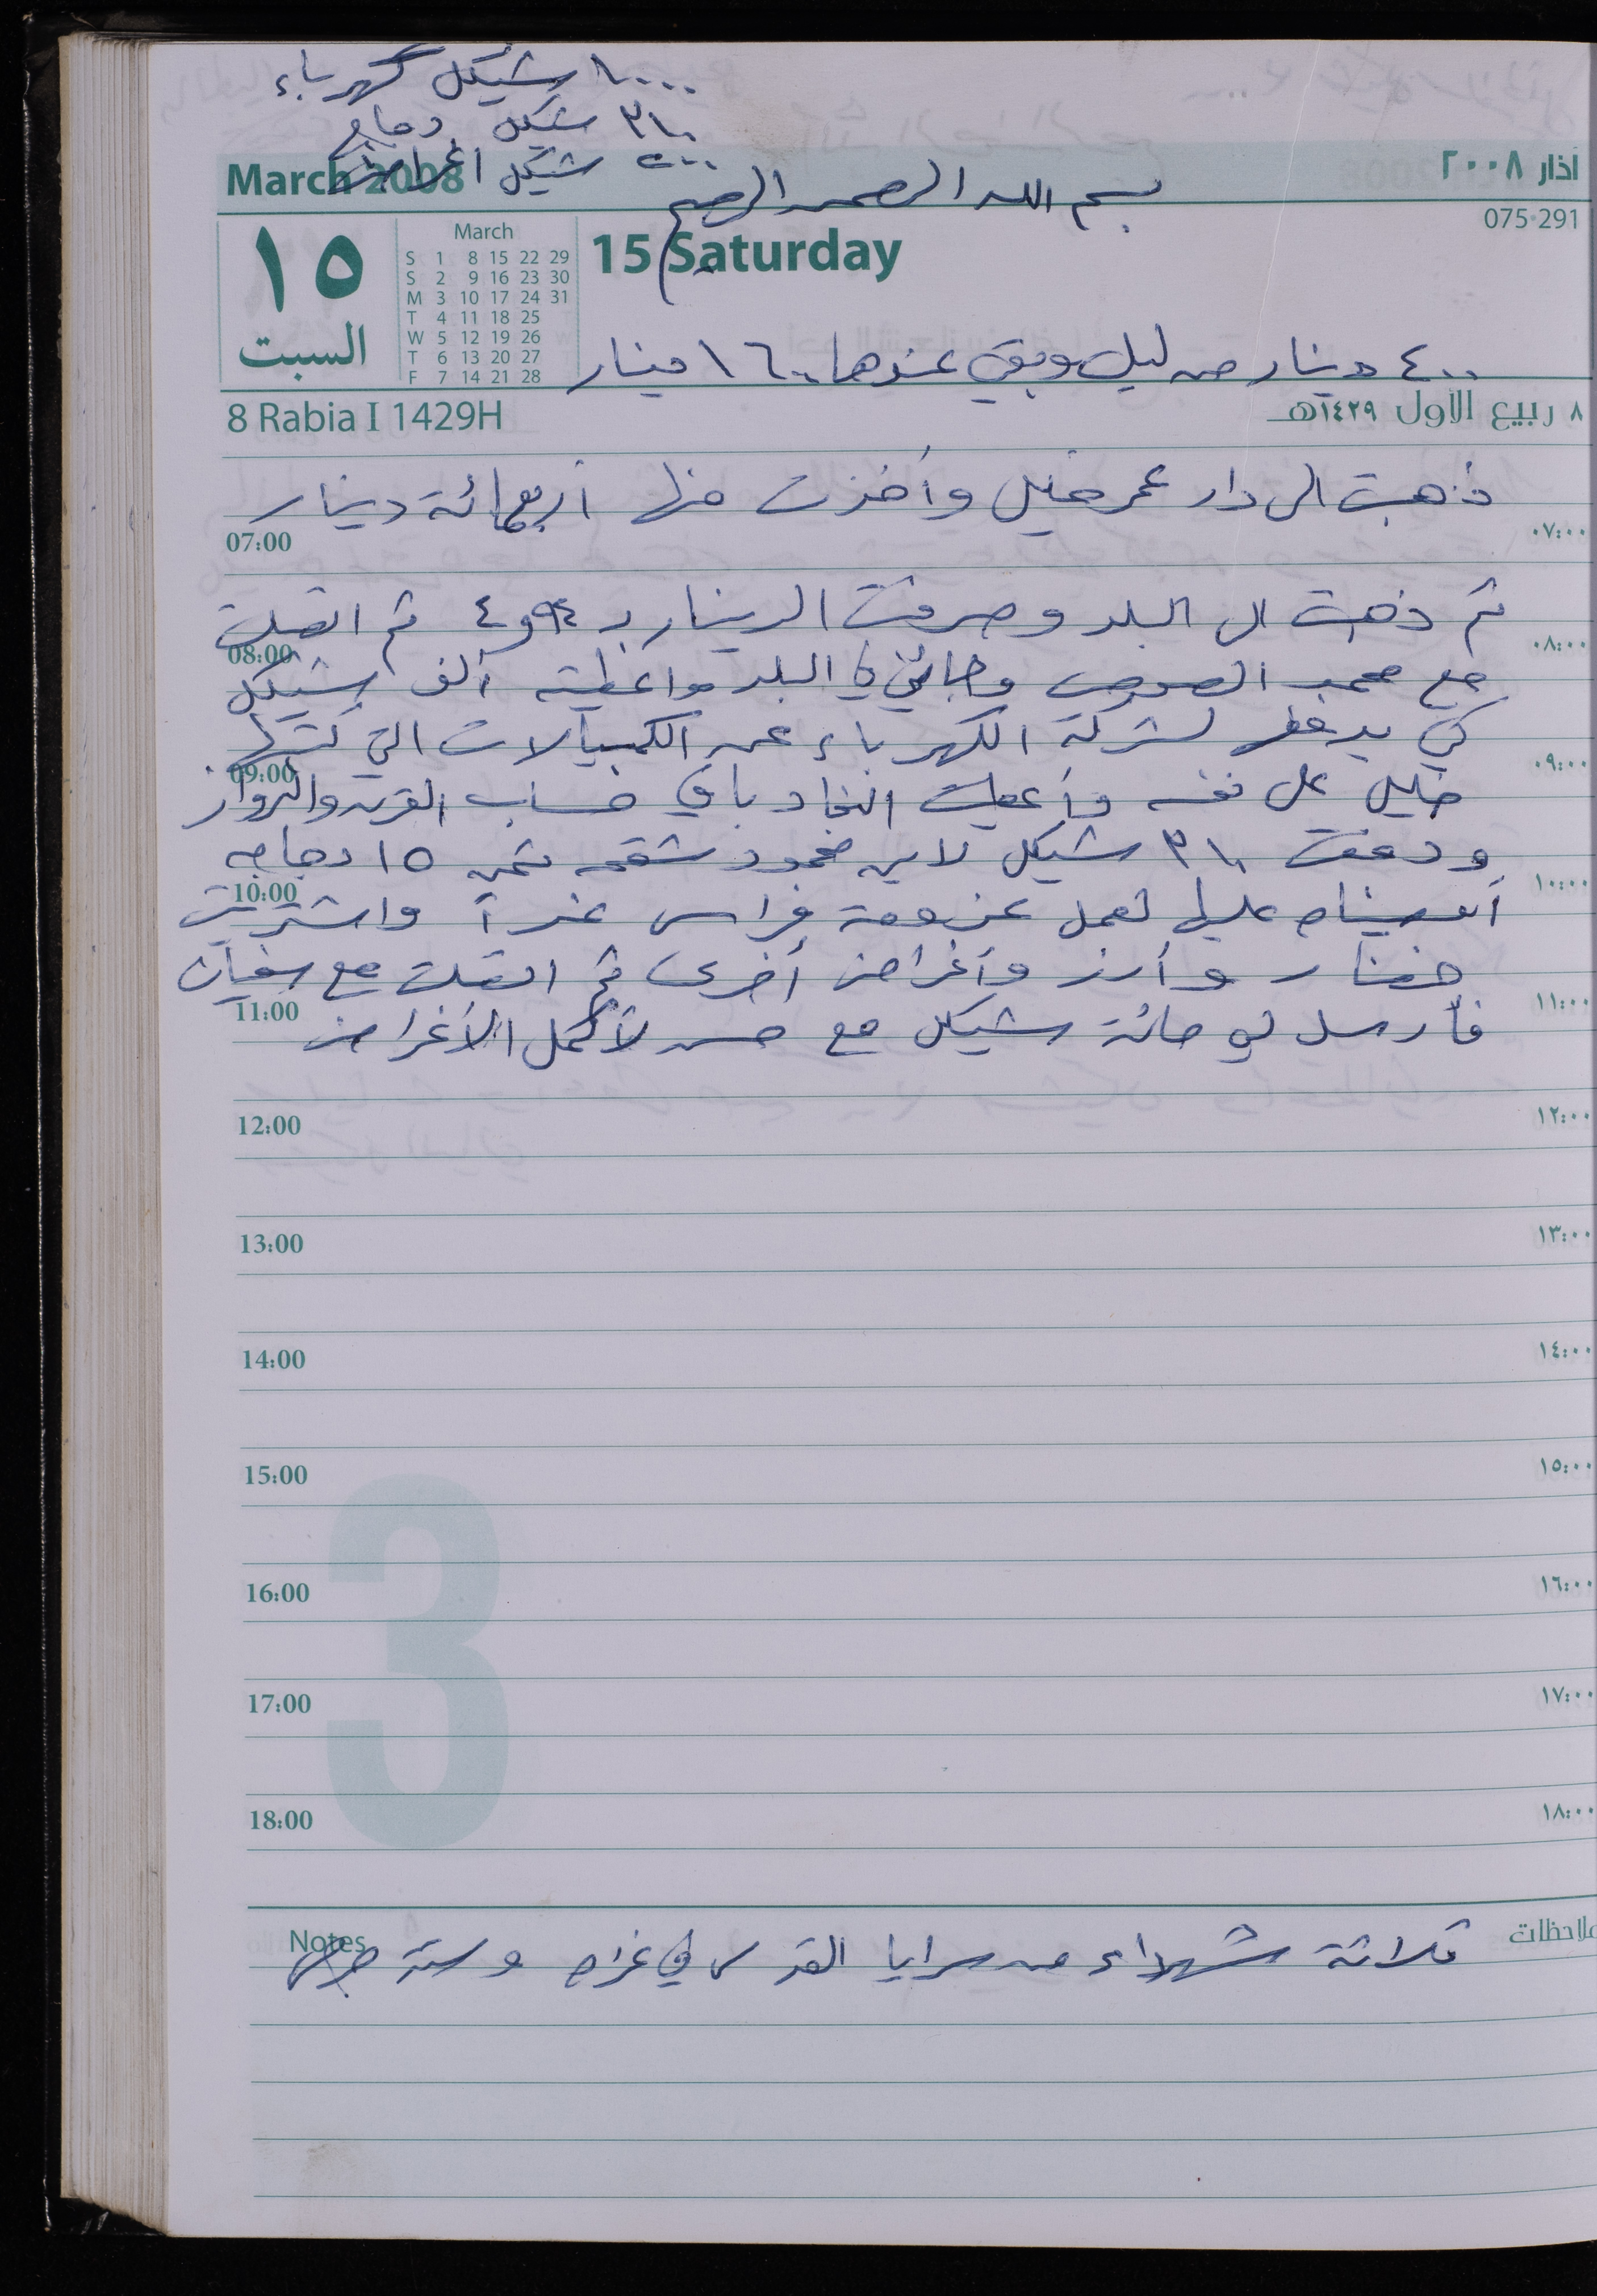 ١٠٠٠ شيكل كهرباء
٣١٠ شيكل دجاج
٥٠٠ شيكل أغراض
March 2008
آذار ٢٠٠٨
بسم الله الرحمن الرحيم
075-291
١٥
السبت
March
S 1 8 15 22 29
S 2 9 16 23 30
M 3 10 17 24 31
T 4 11 18 25
W 5 12 19 26
T 6 13 20 27
F 7 14 21 28
15 Saturday
٤٠٠ دينار من ليلى وبقي عندها ١٦٠٠ دينار
8 Rabia I 1429H
٨ ربيع الأول ١٤٢٩هـ
ذهبت الى دار عمر خليل وأخذت منها أربعمائة دينار
07:00 ٠٧:٠٠
ثم ذهبت الى البلد وصرفت الدينار بـ ٩٤و٤ ثم اتصلت
08:00 ٠٨:٠٠
مع محمد الصوص وجائني في البلد وأعطيته ألف شيكل
كي يدفعها لشركة الكهرباء عن الكمبيالات التي كتبها
09:00 ٠٩:٠٠
خليل على نفسه وأعطيت باقي حساب والزوار
ودفعت ٣١٠ شيكل لابن محمود شقمه ثمن ١٥ دجاجه
10:00 ١٠:٠٠
عليها لعمل عزومة فراس غداً واشتريت
خضار وأرز وأغراض أخرى ثم اتصلت مع سفيان
11:00 ١١:٠٠
فأرسل لي مائة شيكل مع حسن لأكمل الأغراض
12:00 ١٢:٠٠
13:00 ١٣:٠٠
14:00 ١٤:٠٠
15:00 ١٥:٠٠
16:00 ١٦:٠٠
17:00 ١٧:٠٠
18:00 ١٨:٠٠
3
Notes ملاحظات
ثلاثة شهداء من سرايا القدس في غزة وستة جرحى